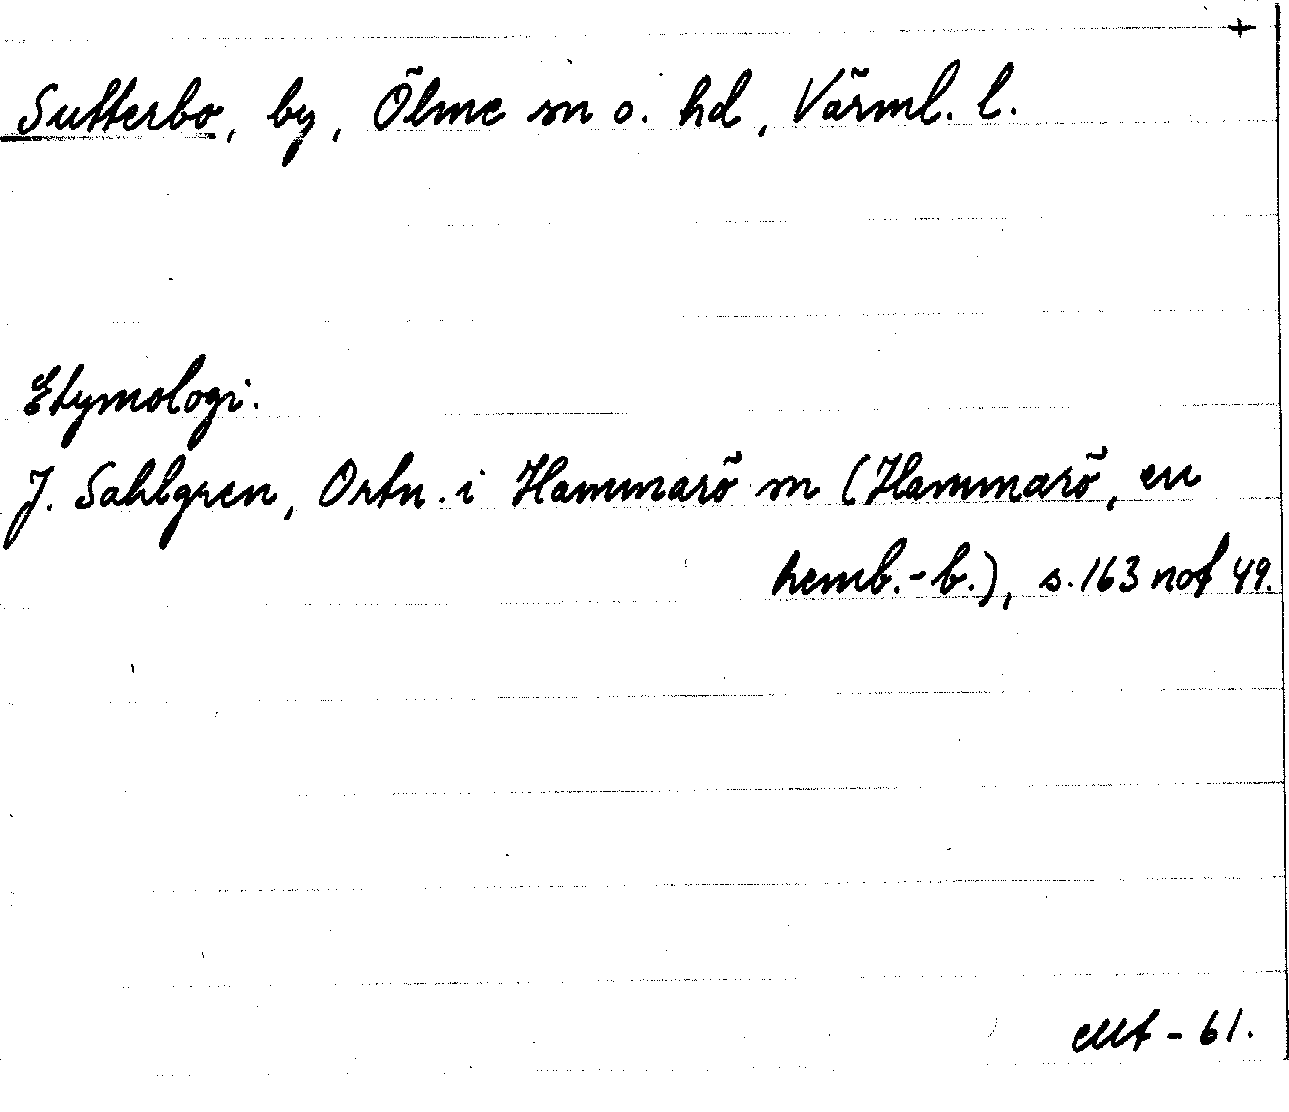 +
Sutterbo, by, Ölme sn o. hd, Värml. l.
Etymologi.
J. Sahlgren, Ortn. i Hammarö sn (Hammarö, en
hemb.-b.), s. 163 not 49.
- 61.